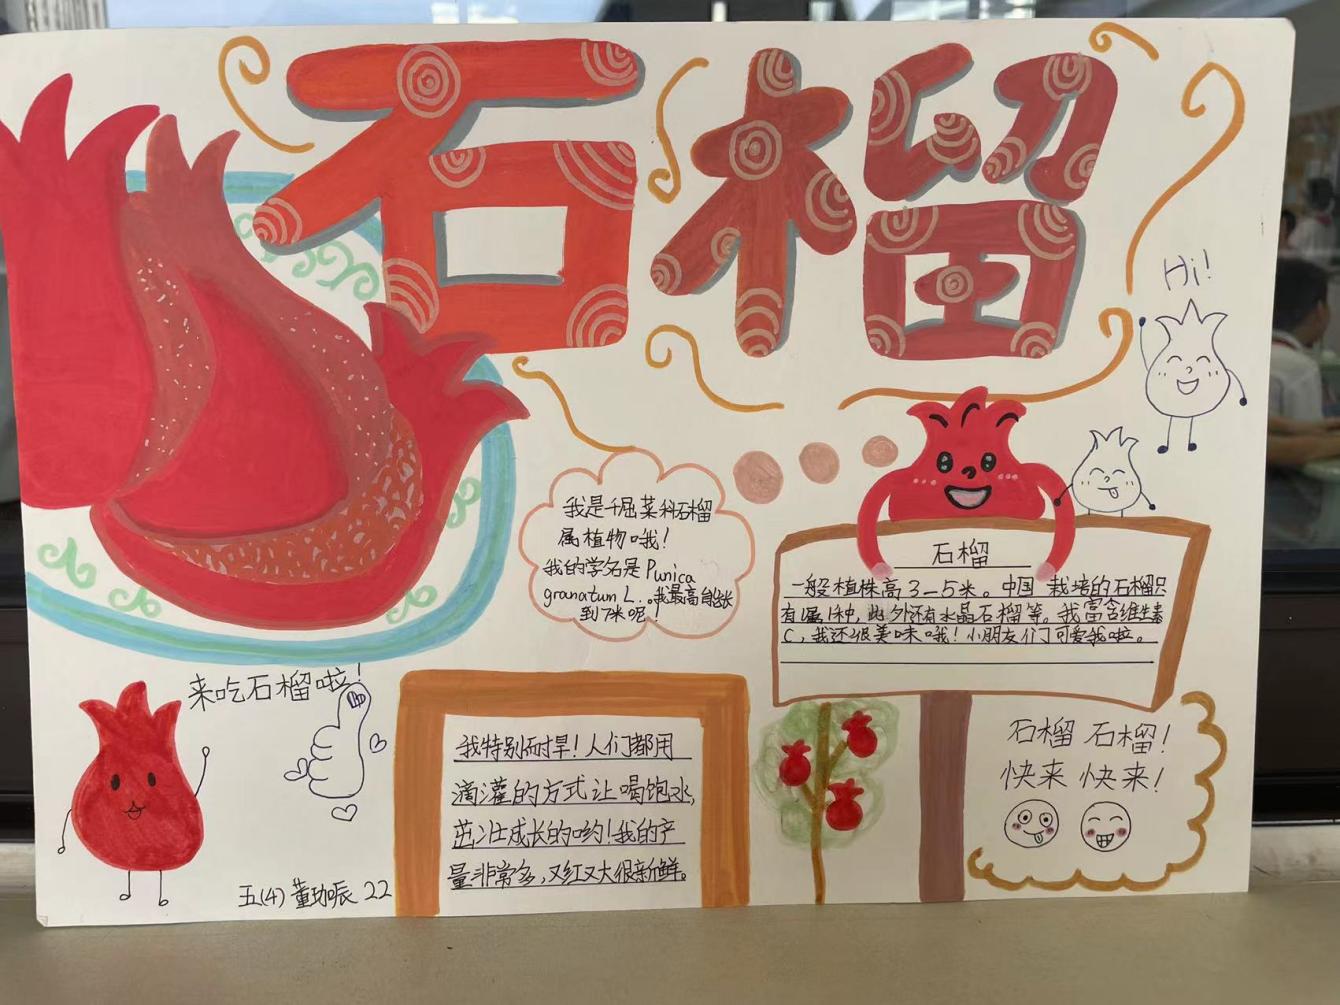 石榴
Hi!
我是千屈菜科石榴
属植物哦！
我的学名是Punica
granatum L.。我最高能长
到7米呢！
石榴
一般植株高3-5米。中国栽培的石榴只
有1属1种，此外还有水晶石榴等。我富含维生素
C，我还很美味哦！小朋友们可爱我啦。
来吃石榴啦！
我特别耐旱！人们都用
滴灌的方式让喝饱水，
茁壮成长的哟！我的产
量非常多，又红又大很新鲜。
石榴 石榴！
快来 快来！
五(4) 董 22